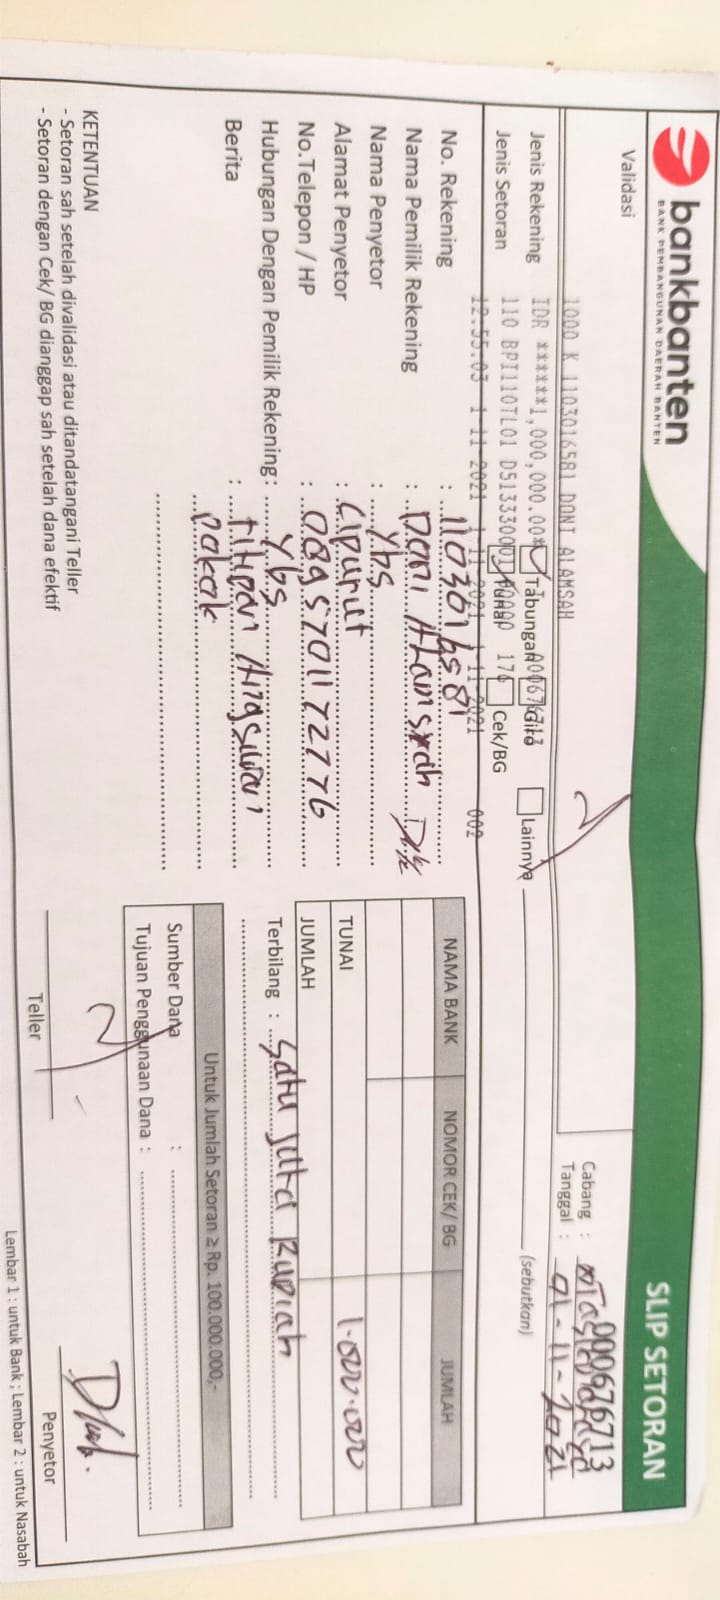 bankbanten
BANK PEMBANGUNAN DAERAH BANTEN
SLIP SETORAN
Validasi
000676713
Cabang :
Tanggal : 01-11-2021
1000 K 1103016581 DONI ALAMSAH
IDR ******1,000,000.00*
110 BPI110TL01 D5133300
12.55.03 1-11-2021 1-11-2021 1-11-2021 002
Jenis Rekening Tabungan Giro Lainnya (sebutkan)
Jenis Setoran Tunai Cek/BG
No. Rekening : 1103016581
Nama Pemilik Rekening : Doni Alamsyah
Nama Penyetor : Ybs
Alamat Penyetor : Cipurut
No.Telepon / HP : 0895701172776
Hubungan Dengan Pemilik Rekening: Ybs
Berita : titipan Angsuran
pokok
NAMA BANK NOMOR CEK/ BG JUMLAH
TUNAI 1.000.000
JUMLAH
Terbilang : Satu juta Rupiah
Untuk Jumlah Setoran ≥ Rp. 100.000.000,-
Sumber Dana :
Tujuan Penggunaan Dana :
KETENTUAN
- Setoran sah setelah divalidasi atau ditandatangani Teller
- Setoran dengan Cek/ BG dianggap sah setelah dana efektif
Teller
Penyetor
Lembar 1 : untuk Bank ; Lembar 2 : untuk Nasabah